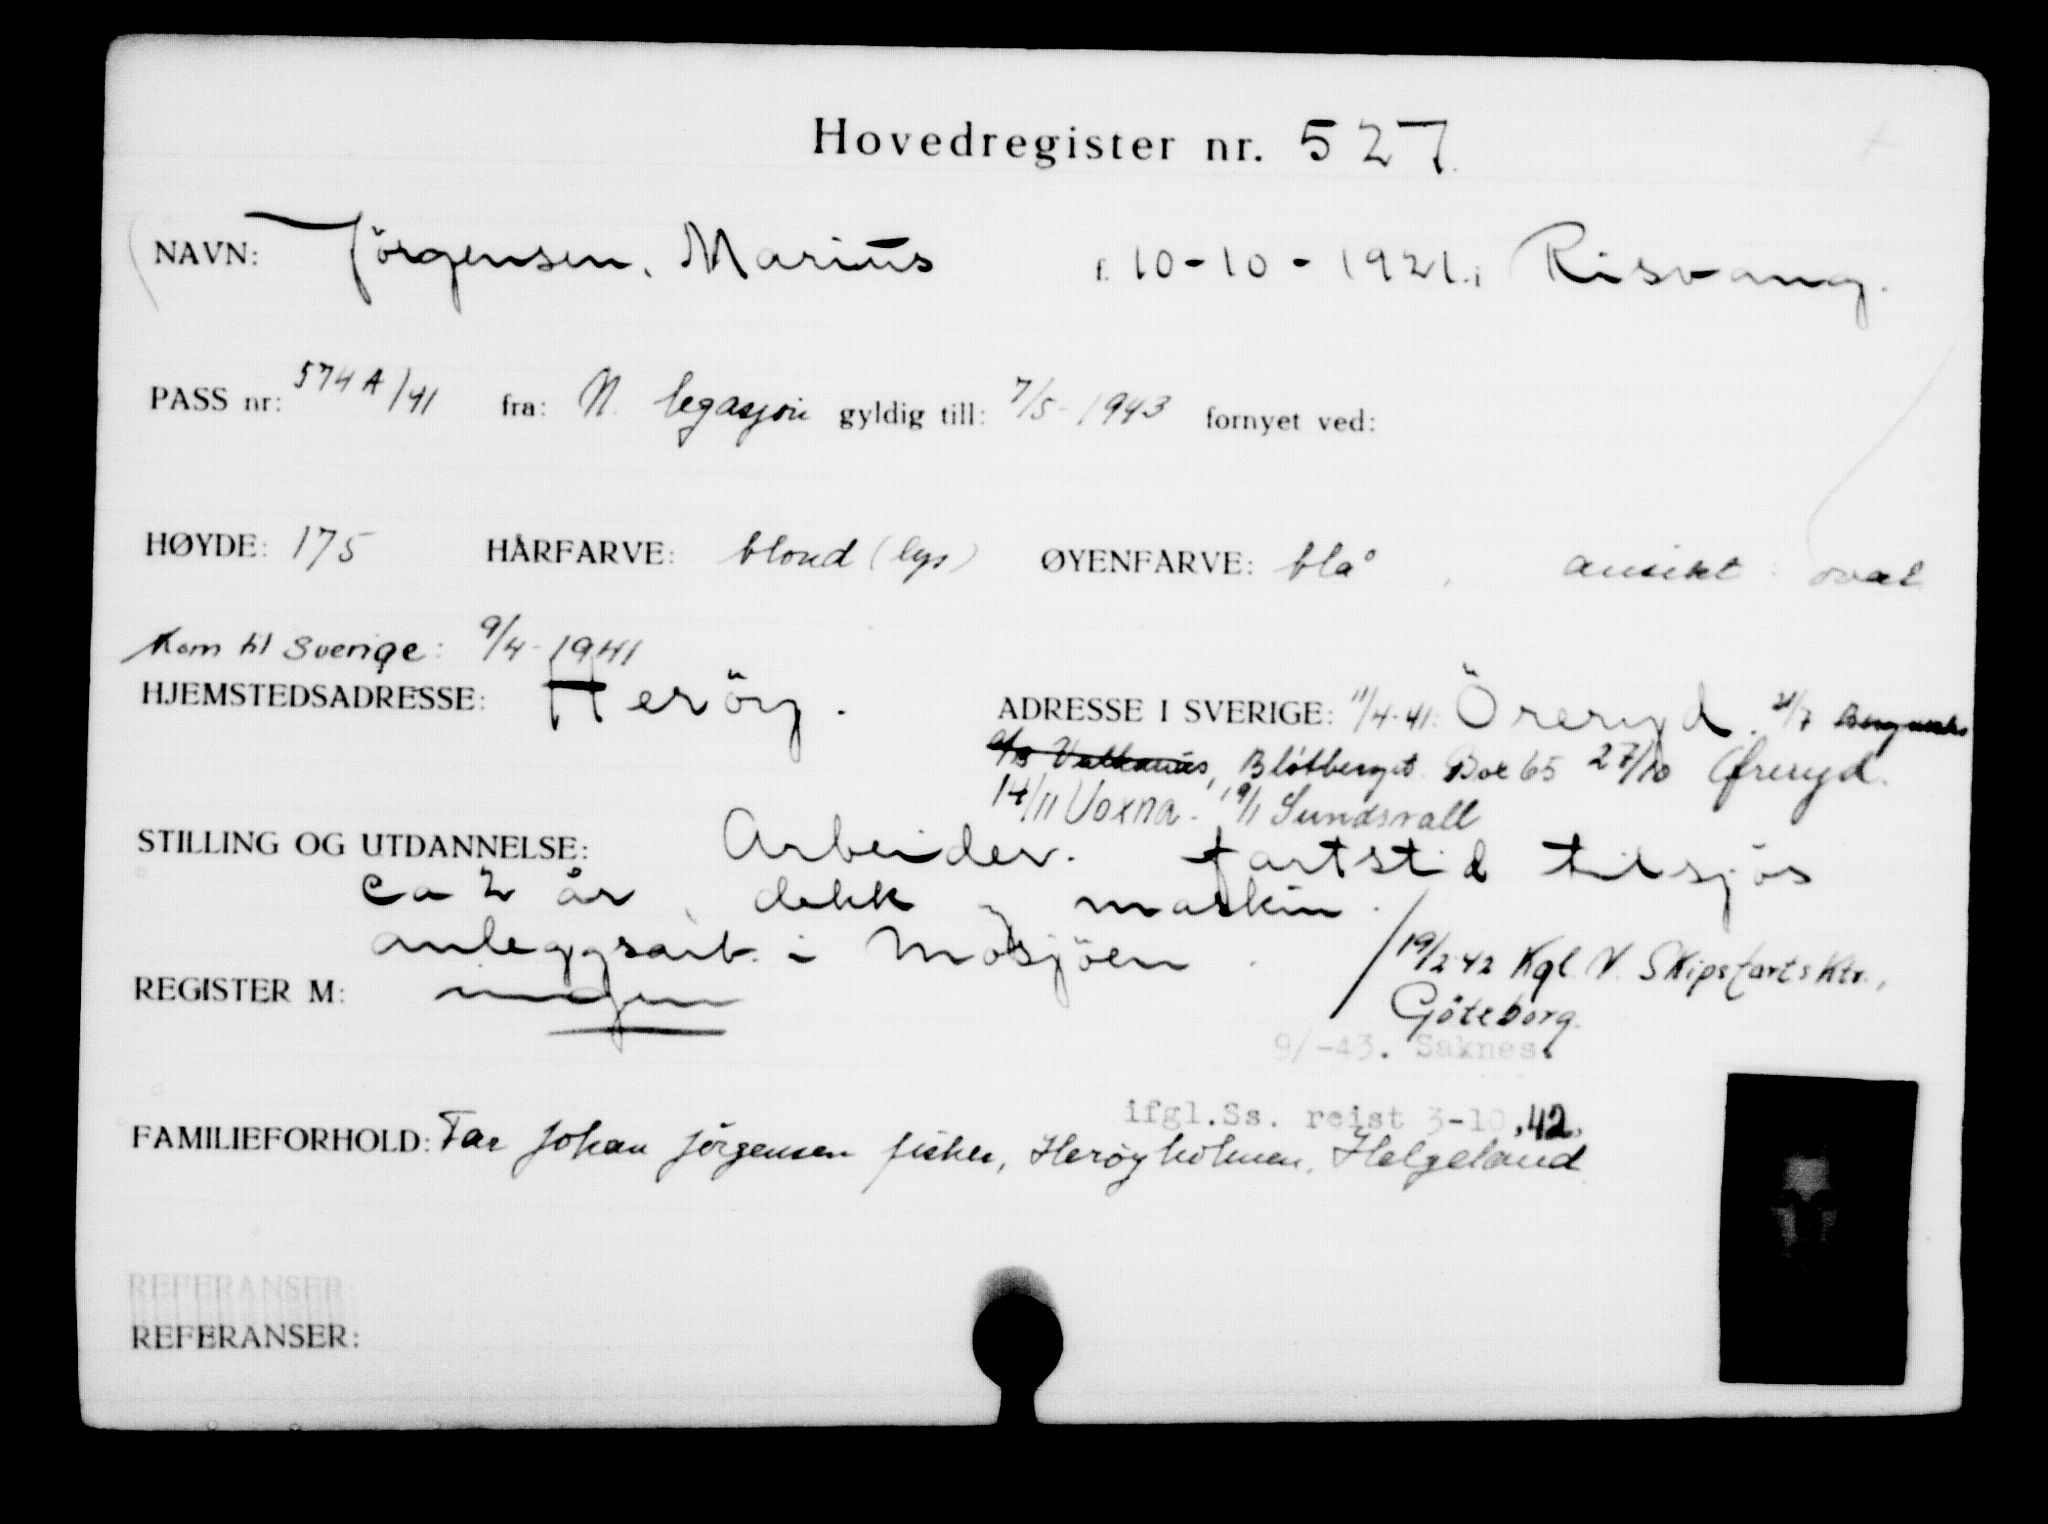 Hovedregister nr. 527
NAVN: Jörgensen, Marius f. 10-10-1921 i Risvang.
PASS nr: 574A/41 fra: N. legasjon gyldig till: 7/5-1943 fornyet ved:
HØYDE: 175 HÅRFARVE: blond (lys) ØYENFARVE: blå, ansikt: oval
Kom til Sverige: 9/4-1941
HJEMSTEDSADRESSE: Heröy. ADRESSE I SVERIGE: 11/4-41: Öreryd. 21/7
A/B Vulkanus, Blötberget Box 65 27/10 Øreryd.
14/11 Voxna. 19/1 Sundsvall
STILLING OG UTDANNELSE: Arbeider. fartstid tilsjös
ca 2 år, dekk og maskin.
anleggsarb. i Mosjöen.
19/2-42 Kgl. N. Skipsfartsktr.,
REGISTER M: ingen
Göteborg.
9/-43. Saknes.
ifgl.Ss. reist 3-10.42.
FAMILIEFORHOLD: Far Johan Jørgensen fisker, Herøyholmen, Helgeland
REFERANSER:
REFERANSER: